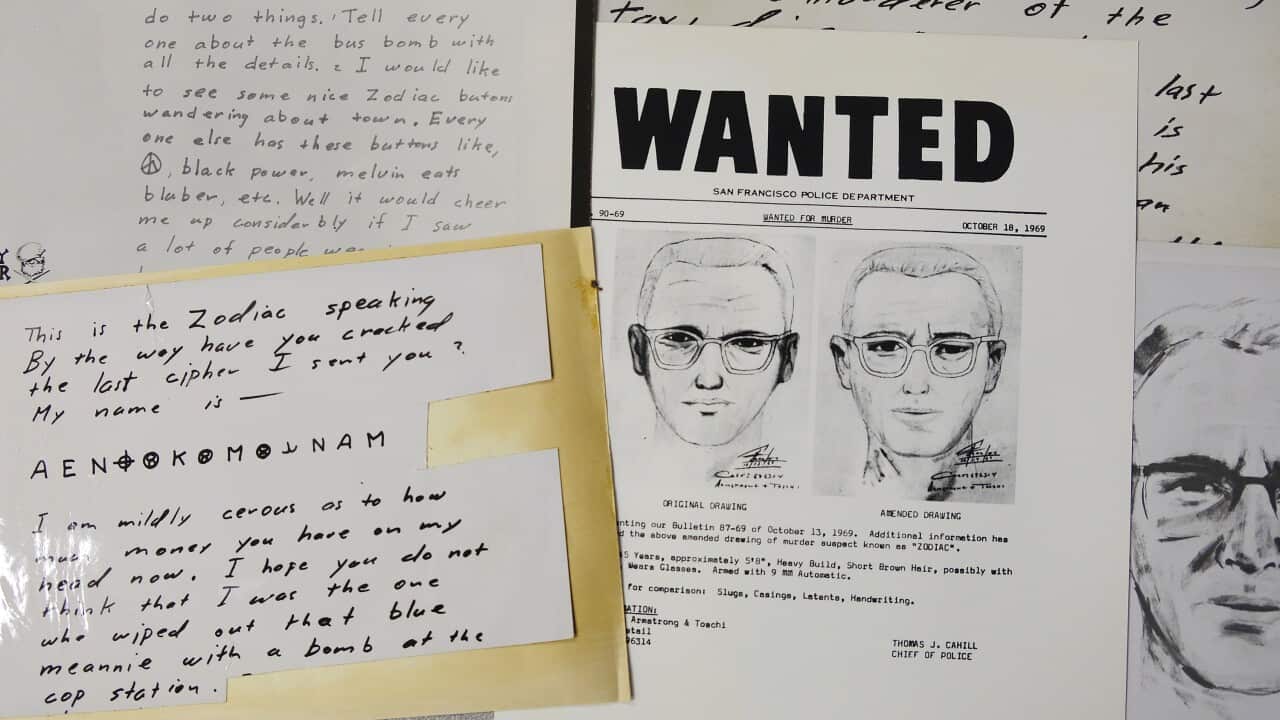 do two things. Tell every
one about the bus bomb with
all the details. 2 I would like
to see some nice Zodiac butons
wandering about town. Every
one else has these buttons like,
☮, black power, melvin eats
bluber, etc. Well it would cheer
me up considerbly if I saw
a lot of people
This is the Zodiac speaking
By the way have you cracked
the last cipher I sent you?
My name is —
A E N ⌖ ⊗ K ⊗ M ⊗ ⅃ N A M
I am mildly cerous as to how
much money you have on my
head now. I hope you do not
think that I was the one
who wiped out that blue
meannie with a bomb at the
cop station.
of the
last
is
his
an
WANTED
SAN FRANCISCO POLICE DEPARTMENT
90-69 WANTED FOR MURDER OCTOBER 18, 1969
ORIGINAL DRAWING AMENDED DRAWING
nting our Bulletin 87-69 of October 13, 1969. Additional information has
d the above amended drawing of murder suspect known as "ZODIAC".
5 Years, approximately 5'8", Heavy Build, Short Brown Hair, possibly with
Wears Glasses. Armed with 9 MM Automatic.
for comparison: Slugs, Casings, Latents, Handwriting.
ATION:
Armstrong & Toschi
etail
96314
THOMAS J. CAHILL
CHIEF OF POLICE